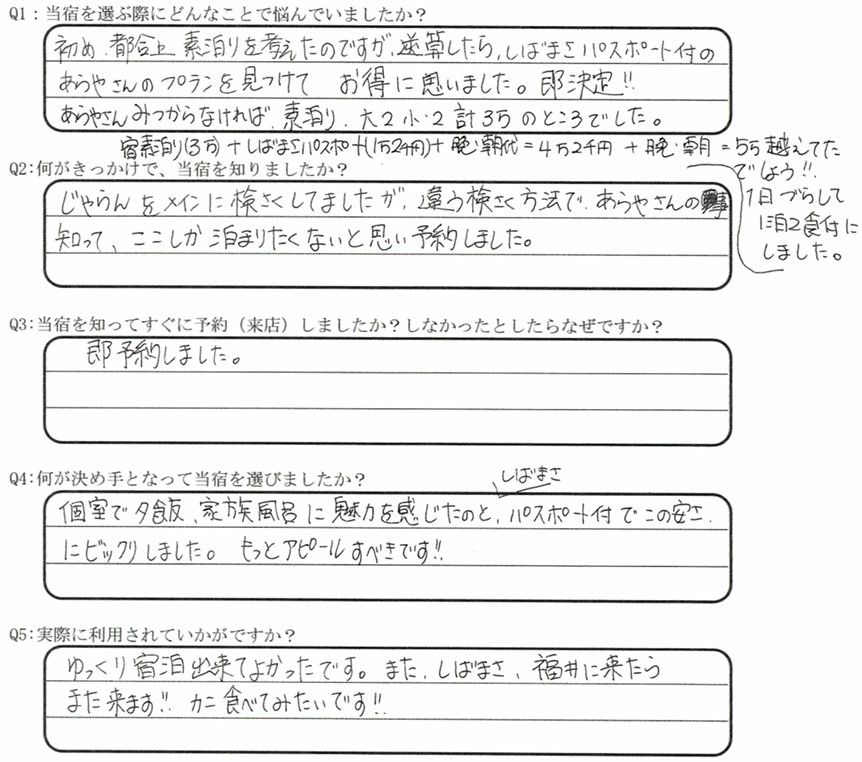 Q1：当宿を選ぶ際にどんなことで悩んでいましたか？
初め、都合上 素泊りを考えたのですが、逆算したら、しばまさパスポート付の
あらやさんのプランを見つけて お得に思いました。即決定!!
あらやさんみつからなければ、素泊り、大2 小・2 計3万のところでした。
宿素泊り(3万)+しばまさパスポート(1万2千円)+晩・朝代=4万2千円 + 晩・朝=5万越えてた
でしょう!!
Q2：何がきっかけで、当宿を知りましたか？
じゃらんをメインに検さくしてましたが、違う検さく方法で、あらやさんの事
知って、ここしか泊まりたくないと思い予約しました。
1日づらして
1泊2食付に
しました。
Q3：当宿を知ってすぐに予約（来店）しましたか？しなかったとしたらなぜですか？
即予約しました。
Q4：何が決め手となって当宿を選びましたか？
しばまさ
個室で夕飯、家族風呂に魅力を感じたのと、パスポート付でこの安さ、
にビックリしました。 もっとアピールすべきです!!
Q5：実際に利用されていかがですか？
ゆっくり宿泊出来てよかったです。また、しばまさ、福井に来たら
また来ます!! カニ食べてみたいです!!